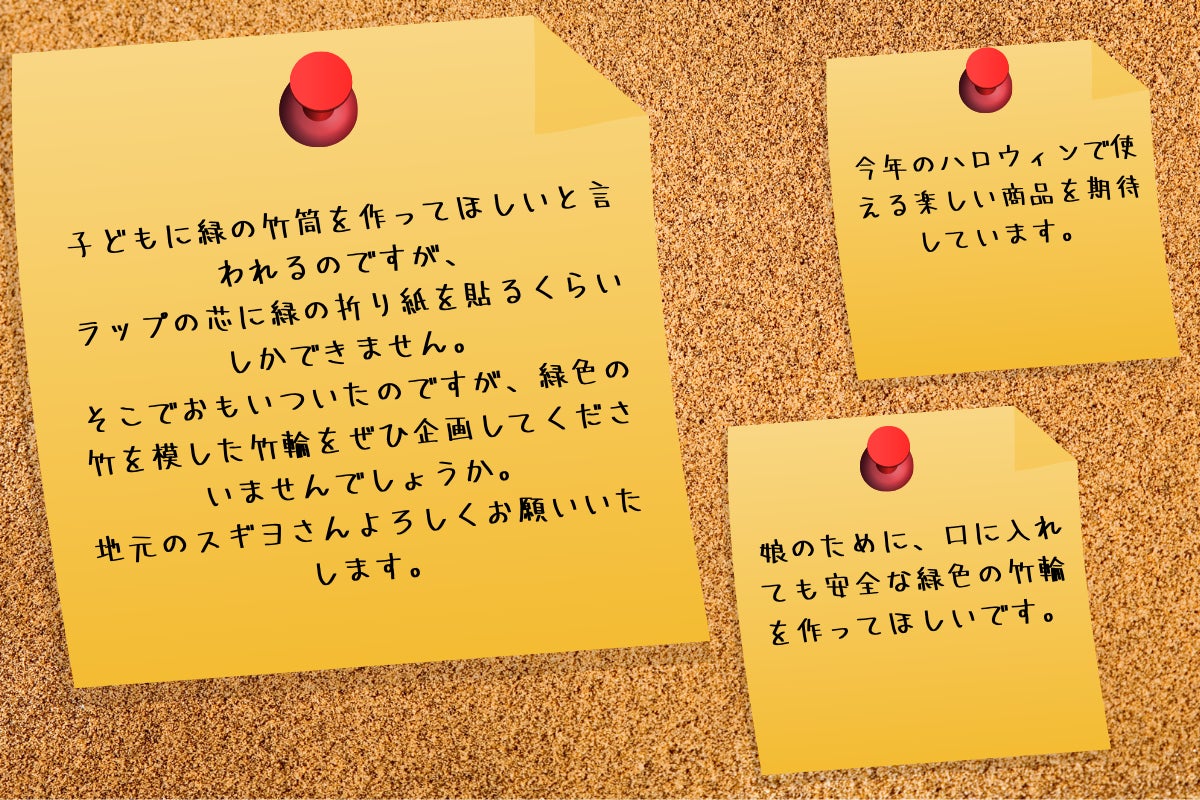 子どもに緑の竹筒を作ってほしいと言
われるのですが、
ラップの芯に緑の折り紙を貼るくらい
しかできません。
そこでおもいついたのですが、緑色の
竹を模した竹輪をぜひ企画してくださ
いませんでしょうか。
地元のスギヨさんよろしくお願いいた
します。
今年のハロウィンで使
える楽しい商品を期待
しています。
娘のために、口に入れ
ても安全な緑色の竹輪
を作ってほしいです。